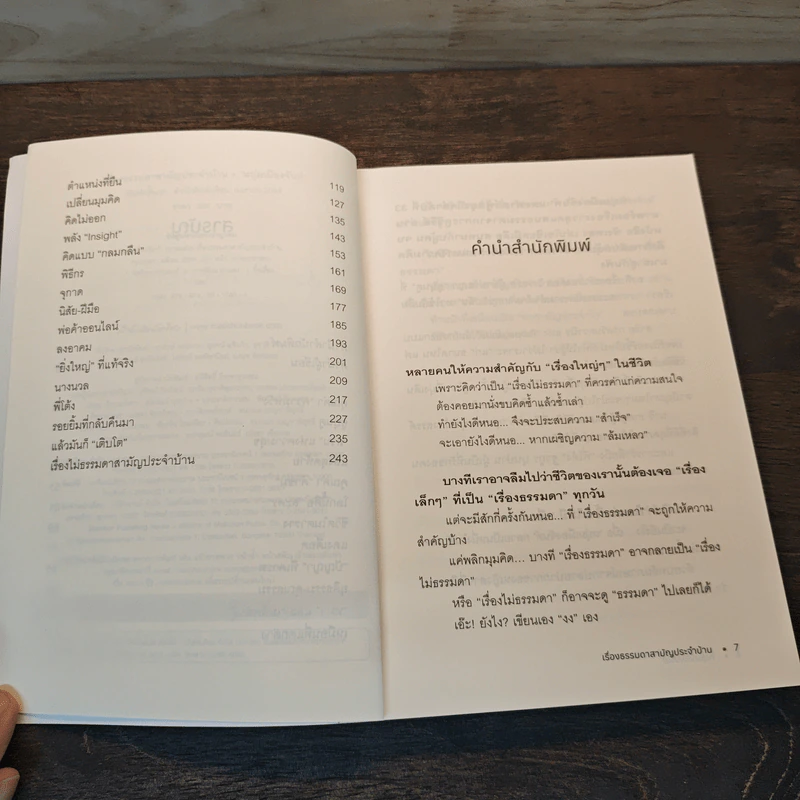 ตำแหน่งที่ยืน 119
เปลี่ยนมุมคิด 127
คิดไม่ออก 135
พลัง "Insight" 143
คิดแบบ "กลมกลืน" 153
พิธีกร 161
จุกาด 169
นิสัย-ฝีมือ 177
พ่อค้าออนไลน์ 185
ลงอาคม 193
"ยิ่งใหญ่" ที่แท้จริง 201
นางนวล 209
พี่โต้ง 217
รอยยิ้มที่กลับคืนมา 227
แล้วมันก็ "เติบโต" 235
เรื่องไม่ธรรมดาสามัญประจำบ้าน 243
คำนำสำนักพิมพ์
หลายคนให้ความสำคัญกับ "เรื่องใหญ่ๆ" ในชีวิต
เพราะคิดว่าเป็น "เรื่องไม่ธรรมดา" ที่ควรค่าแก่ความสนใจ
ต้องคอยมานั่งขบคิดซ้ำแล้วซ้ำเล่า
ทำยังไงดีหนอ... จึงจะประสบความ "สำเร็จ"
จะเอายังไงดีหนอ... หากเผชิญความ "ล้มเหลว"
บางทีเราอาจลืมไปว่าชีวิตของเรานั้นต้องเจอ "เรื่อง
เล็กๆ" ที่เป็น "เรื่องธรรมดา" ทุกวัน
แต่จะมีสักกี่ครั้งกันหนอ... ที่ "เรื่องธรรมดา" จะถูกให้ความ
สำคัญบ้าง
แค่พลิกมุมคิด... บางที "เรื่องธรรมดา" อาจกลายเป็น "เรื่อง
ไม่ธรรมดา"
หรือ "เรื่องไม่ธรรมดา" ก็อาจจะดู "ธรรมดา" ไปเลยก็ได้
เอ๊ะ! ยังไง? เขียนเอง "งง" เอง
เรื่องธรรมดาสามัญประจำบ้าน • 7